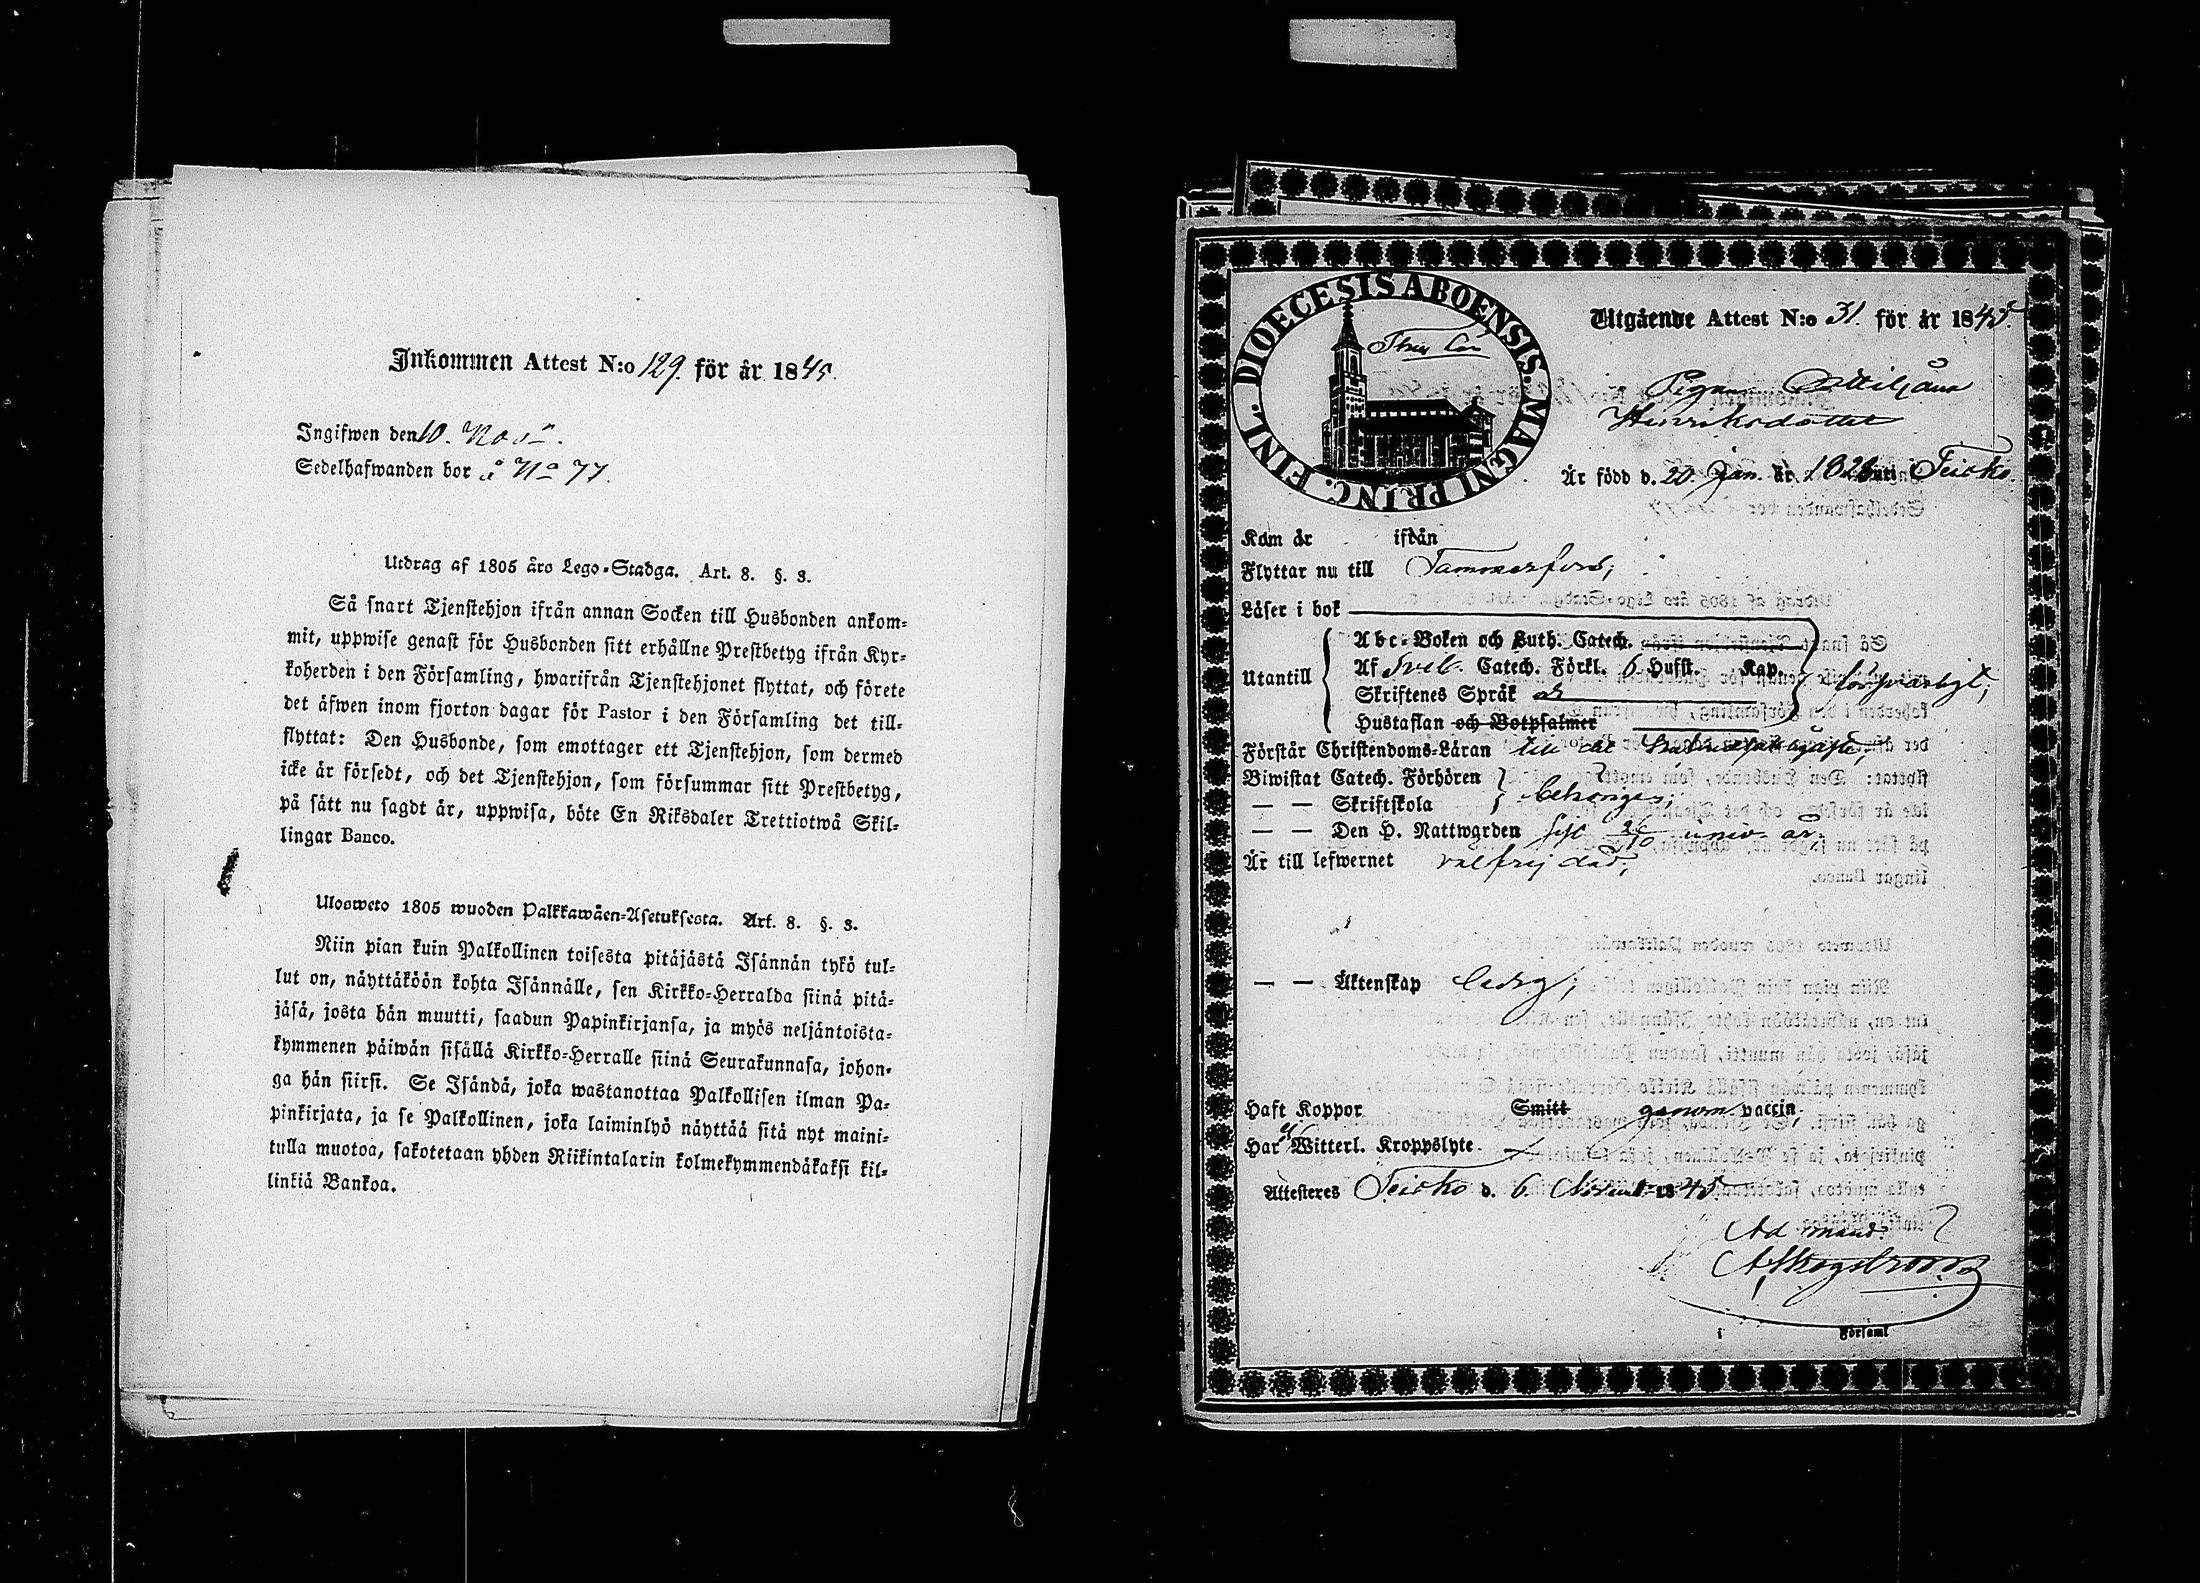 Inkommen Attest N:o 129. för år 1845.
Ingifwen den 10. Nov.
Sedelhafwanden bor å No 77.
Utdrag af 1805 års Lego-Stadga. Art. 8. §. 3.
Så snart Tjenstehjon ifrån annan Socken till Husbonden ankom-
mit, uppwise genast för Husbonden sitt erhållne Prestbetyg ifrån Kyr-
koherden i den Församling, hwarifrån Tjenstehjonet flyttat, och förete
det äfwen inom fjorton dagar för Pastor i den Församling det till-
flyttat: Den Husbonde, som emottager ett Tjenstehjon, som dermed
icke är försedt, och det Tjenstehjon, som försummar sitt Prestbetyg,
på sätt nu sagdt är, uppwisa, böte En Riksdaler Trettiotwå Skil-
lingar Banco.
Ulosweto 1805 wuoden Palkkawäen-Asetuksesta. Art. 8. §. 3.
Niin pian kuin Palkollinen toisesta pitäjästä Isännän tykö tul-
lut on, näyttäköön kohta Isännälle, sen Kirkko-Herralda siinä pitä-
jäsä, josta hän muutti, saadun Papinkirjansa, ja myös neljäntoista-
kymmenen päiwän sisällä Kirkko-Herralle siinä Seurakunnasa, johon-
ga hän siirsi. Se Isändä, joka wastanottaa Palkollisen ilman Pa-
pinkirjata, ja se Palkollinen, joka laiminlyö näyttää sitä nyt maini-
tulla muotoa, sakotetaan yhden Riikintalarin kolmekymmendäkaksi kil-
linkiä Bankoa.
DIOECESIS ABOENSIS. MAGNI PRINC. FINL.
Utgående Attest N:o 31. för år 1845.
Pigan
Henriksdotter
Är född d. 20 Jan. år 1826 uti Teisko.
Kom år ifrån
Flyttar nu till Tammerfors;
Läser i bok
Utantill
Abc-Boken och Luth. Catech.
Af Sveb. Catech. Förkl. 6 Hufst. Kap.
Skriftenes Språk
Hustaflan och Botpsalmer
försvarligt;
Förstår Christendoms-Läran till
Biwistat Catech. Förhören
— — Skriftskola behörigen;
— — Den H. Nattwarden sist 26/10 innev. år.
Är till lefwernet välfrejdad;
— — Äktenskap ledig;
Haft Koppor Smitt genom vaccin.
Har ej Witterl. Kroppslyte.
Attesteres Teisko d. 6. Novemb. 1845
Ad mand:
i Församl